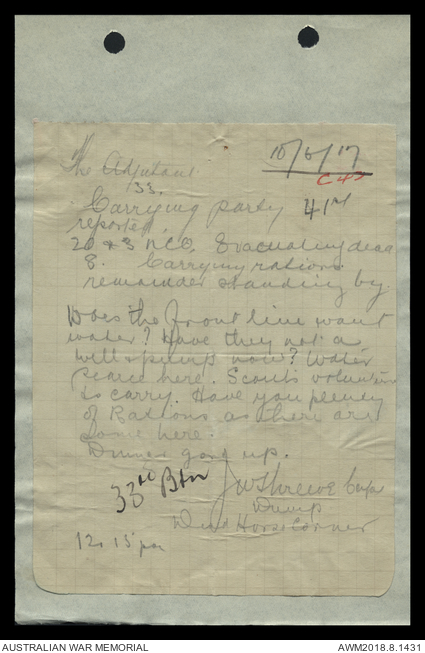 The Adjutant
10/6/17
C43
133.
Carrying party 41st
reported.
20 & 3 NCO Evacuating dead
8. Carrying rations
remainder standing by.
Does the front line want
water? Have they not a
well & pump now? Water
scarce here. Scouts volunteer
to carry. Have you plenty
of Rations as there are
some here.
Dinner going up.
33rd Btn
Dump
Dead Horse Corner
12. 15 pm
AUSTRALIAN WAR MEMORIAL
AWM2018.8.1431